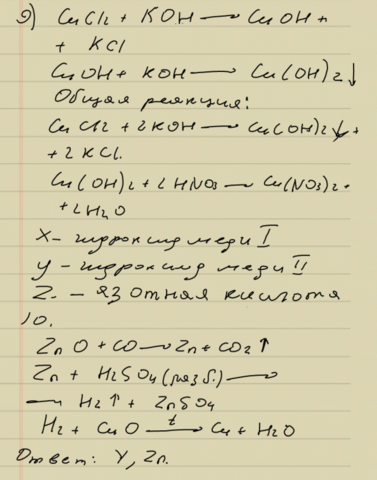 9) CuCl2 + KOH → CuOH +
+ KCl
CuOH + KOH → Cu(OH)2↓
Общая реакция:
CuCl2 + 2KOH → Cu(OH)2↓ +
+ 2KCl.
Cu(OH)2 + 2HNO3 → Cu(NO3)2 +
+ 2H2O
X - гидроксид меди I
Y - гидроксид меди II
Z. - азотная кислота
10.
ZnO + CO → Zn + CO2↑
Zn + H2SO4 (разб.) →
→ H2↑ + ZnSO4
H2 + CuO t→ Cu + H2O
Ответ: Y, Zn.